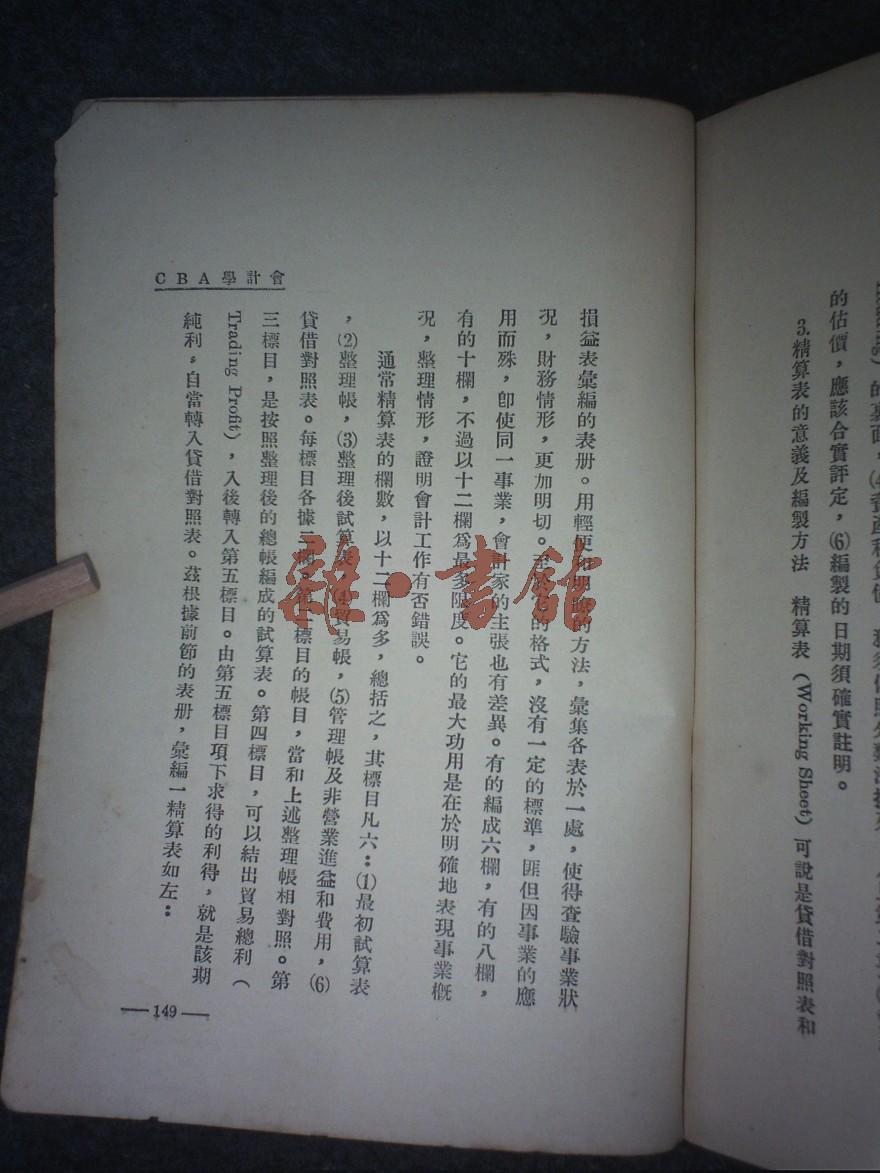 的裏面，
的估價，應該合實評定，(6)編製的日期須確實註明。
3.精算表的意義及編製方法　精算表（Working Sheet）可說是貸借對照表和
會計學ABC
損益表彙編的表册。用輕便和明瞭的方法，彙集各表於一處，使得查驗事業狀
況，財務情形，更加明切。至於它的格式，沒有一定的標準，匪但因事業的應
用而殊，卽使同一事業，會計家的主張也有差異。有的編成六欄，有的八欄，
有的十欄，不過以十二欄爲最多限度。它的最大功用是在於明確地表現事業概
況，整理情形，證明會計工作有否錯誤。
通常精算表的欄數，以十二欄爲多，總括之，其標目凡六：(1)最初試算表
，(2)整理帳，(3)整理後試算表，(4)貿易帳，(5)管理帳及非營業進益和費用，(6)
貸借對照表。每標目各據二欄。第二標目的帳目，當和上述整理帳相對照。第
三標目，是按照整理後的總帳編成的試算表。第四標目，可以結出貿易總利（
Trading Profit），入後轉入第五標目。由第五標目項下求得的利得，就是該期
純利，自當轉入貸借對照表。茲根據前節的表册，彙編一精算表如左：
—149—
雜·書館